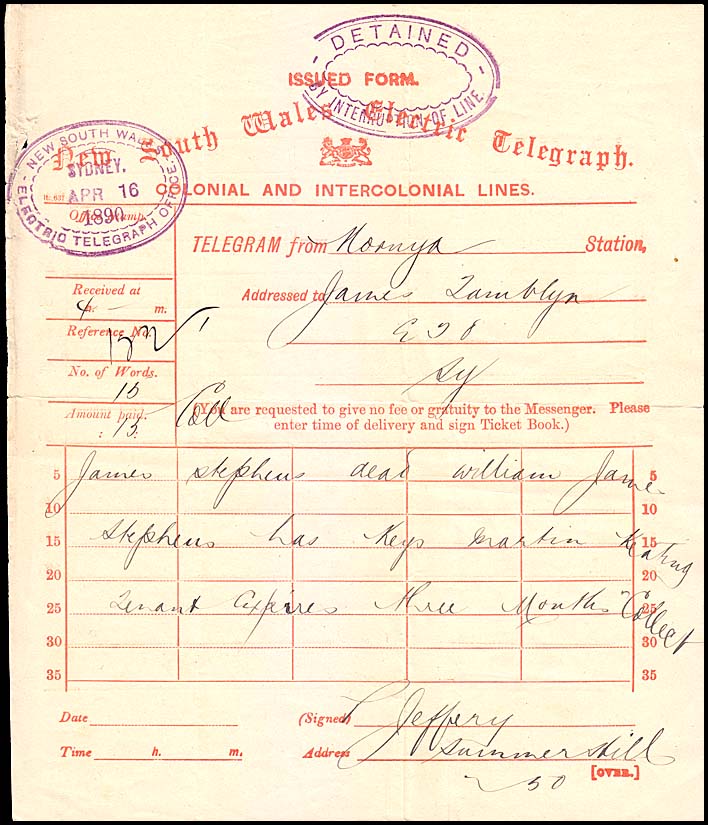 DETAINED
BY INTERRUPTION OF LINE.
ISSUED FORM.
New South Wales Electric Telegraph.
NEW SOUTH WALES
SYDNEY.
APR 16
1890
ELECTRIC TELEGRAPH OFFICE.
COLONIAL AND INTERCOLONIAL LINES.
Office Stamp.
TELEGRAM from Moruya Station,
Addressed to James Tamblyn
Sy
Received at
4 h. - m.
Reference No.
No. of Words.
15
Amount paid.
: 15 : Coll
(You are requested to give no fee or gratuity to the Messenger. Please
enter time of delivery and sign Ticket Book.)
5 James stephens dead william James 5
10 10
15 Stephens has Keys Martin Keating 15
20 20
25 Tenant Expires three Months "Collect 25
30 30
35 35
Date (Signed) Jeffery
Time h. m. Address Summer Hill
50
[OVER.]